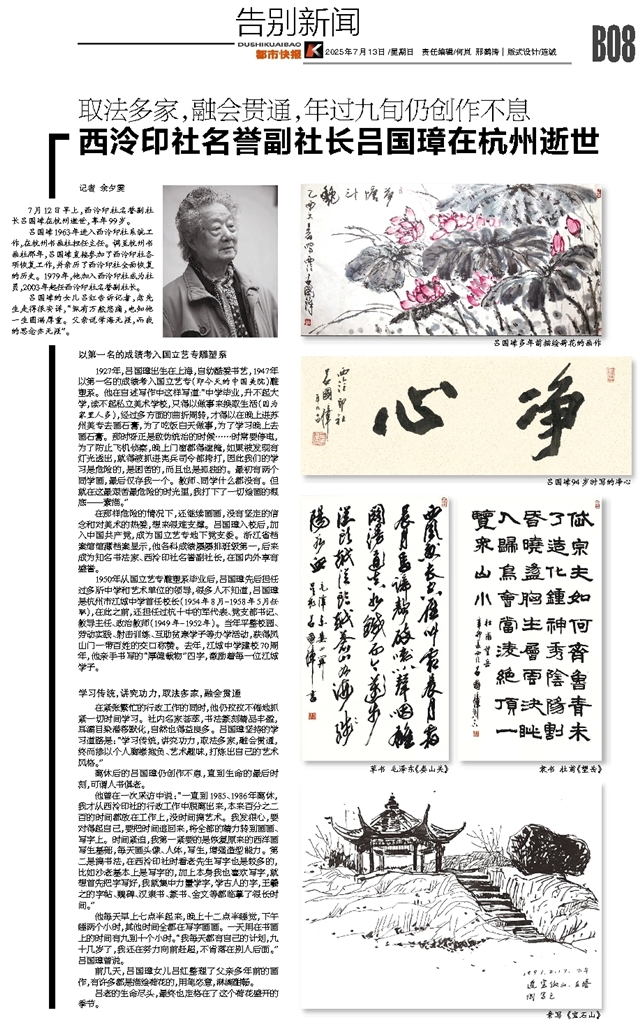 告别新闻
DUSHIKUAIBAO
都市快报
2025年7月13日/星期日 责任编辑/何岚 邢鹤涛│版式设计/连斌
B08
取法多家，融会贯通，年过九旬仍创作不息
西泠印社名誉副社长吕国璋在杭州逝世
记者 余夕雯
7月12日早上，西泠印社名誉副社
长吕国璋在杭州逝世，享年99岁。
吕国璋1963年进入西泠印社系统工
作，在杭州书画社担任主任。调至杭州书
画社那年，吕国璋直接参加了西泠印社各
项恢复工作，并亲历了西泠印社全面恢复
的历史。1979年，他加入西泠印社成为社
员，2003年起任西泠印社名誉副社长。
吕国璋的女儿吕红告诉记者，老先
生走得很安详，“虽有万般悲痛，也知他
一生圆满厚重。父亲说学海无涯，而我
的思念亦无涯”。
以第一名的成绩考入国立艺专雕塑系
1927年，吕国璋出生在上海，自幼酷爱书艺，1947年
以第一名的成绩考入国立艺专（即今天的中国美院）雕
塑系。他在自述写作中这样写道：“中学毕业，升不起大
学，读不起私立美术学校，只得以做事来换取生活（因为
家里人多），经过多方面的曲折周转，才得以在晚上进苏
州美专去画石膏，为了吃饭白天做事，为了学习晚上去
画石膏。那时候正是敌伪统治的时候……时常要停电，
为了防止飞机侦察，晚上门窗都得遮掩，如果被发现有
灯光透出，就得被抓进宪兵司令部拷打，因此我们的学
习是危险的，是困苦的，而且也是孤独的。最初有两个
同学画，最后仅存我一个。教师、同学什么都没有。但
就在这最艰苦最危险的时光里，我打下了一切绘画的根
底——素描。”
在那样危险的情况下，还继续画画，没有坚定的信
念和对美术的热爱，想来很难支撑。吕国璋入校后，加
入中国共产党，成为国立艺专地下党支委。浙江省档
案馆馆藏档案显示，他各科成绩屡屡排班级第一，后来
成为知名书法家、西泠印社名誉副社长，在国内外享有
盛誉。
1950年从国立艺专雕塑系毕业后，吕国璋先后担任
过多所中学和艺术单位的领导，很多人不知道，吕国璋
是杭州市江城中学首任校长（1954年8月-1958年5月任
职），在此之前，还担任过杭十中的军代表、党支部书记、
教导主任、政治教师（1949年-1952年）。当年平整校园、
劳动实践、射击训练、互助贫寒学子等办学活动，获得凤
山门一带百姓的交口称赞。去年，江城中学建校70周
年，他亲手书写的“厚德载物”四字，激励着每一位江城
学子。
学习传统，讲究功力，取法多家，融会贯通
在紧张繁忙的行政工作的同时，他仍孜孜不倦地抓
紧一切时间学习。社内名家荟萃，书法篆刻精品丰盈，
耳濡目染潜移默化，自然也得益良多。吕国璋坚持的学
习道路是：“学习传统，讲究功力，取法多家，融会贯通，
终而修以个人胸襟抱负、艺术趣味，打炼出自己的艺术
风格。”
离休后的吕国璋仍创作不息，直到生命的最后时
刻，可谓人书俱老。
他曾在一次采访中说：“一直到1985、1986年离休，
我才从西泠印社的行政工作中脱离出来，本来百分之二
百的时间都放在工作上，没时间搞艺术。我发狠心，要
对得起自己，要把时间追回来，将全部的精力转到画画、
写字上。时间紧迫，我第一紧要的是恢复原来的西洋画
写生基础，每天画头像、人体，写生，增强造型能力。第
二是搞书法，在西泠印社时看老先生写字也是较多的，
比如沙老基本上是写字的，加上本身我也喜欢写字，就
想首先把字写好，我就集中力量学字，学古人的字，王羲
之的字帖、魏碑、汉隶书、篆书、金文等都临摹了很长时
间。”
他每天早上七点半起来，晚上十二点半睡觉，下午
睡两个小时，其他时间全都在写字画画。一天用在书画
上的时间有九到十个小时。“我每天都有自己的计划，九
十几岁了，我还在努力向前赶超，不肯落在别人后面。”
吕国璋曾说。
前几天，吕国璋女儿吕红整理了父亲多年前的画
作，有许多都是描绘荷花的，用笔恣意，淋漓酣畅。
吕老的生命尽头，最终也定格在了这个荷花盛开的
季节。
吕国璋多年前描绘荷花的画作
净心
西泠印社
吕国璋
吕国璋94岁时写的净心
西风烈长空雁叫霜晨月霜
晨月马蹄声碎喇叭声咽雄
关漫道真如铁而今迈步
从头越从头越苍山如海残
阳如血
草书 毛泽东《娄山关》
岱宗夫如何齐鲁青未
了造化钟神秀阴阳割
昏晓荡胸生层云决眦
入归鸟会当凌绝顶一
览众山小
隶书 杜甫《望岳》
素写《宝石山》